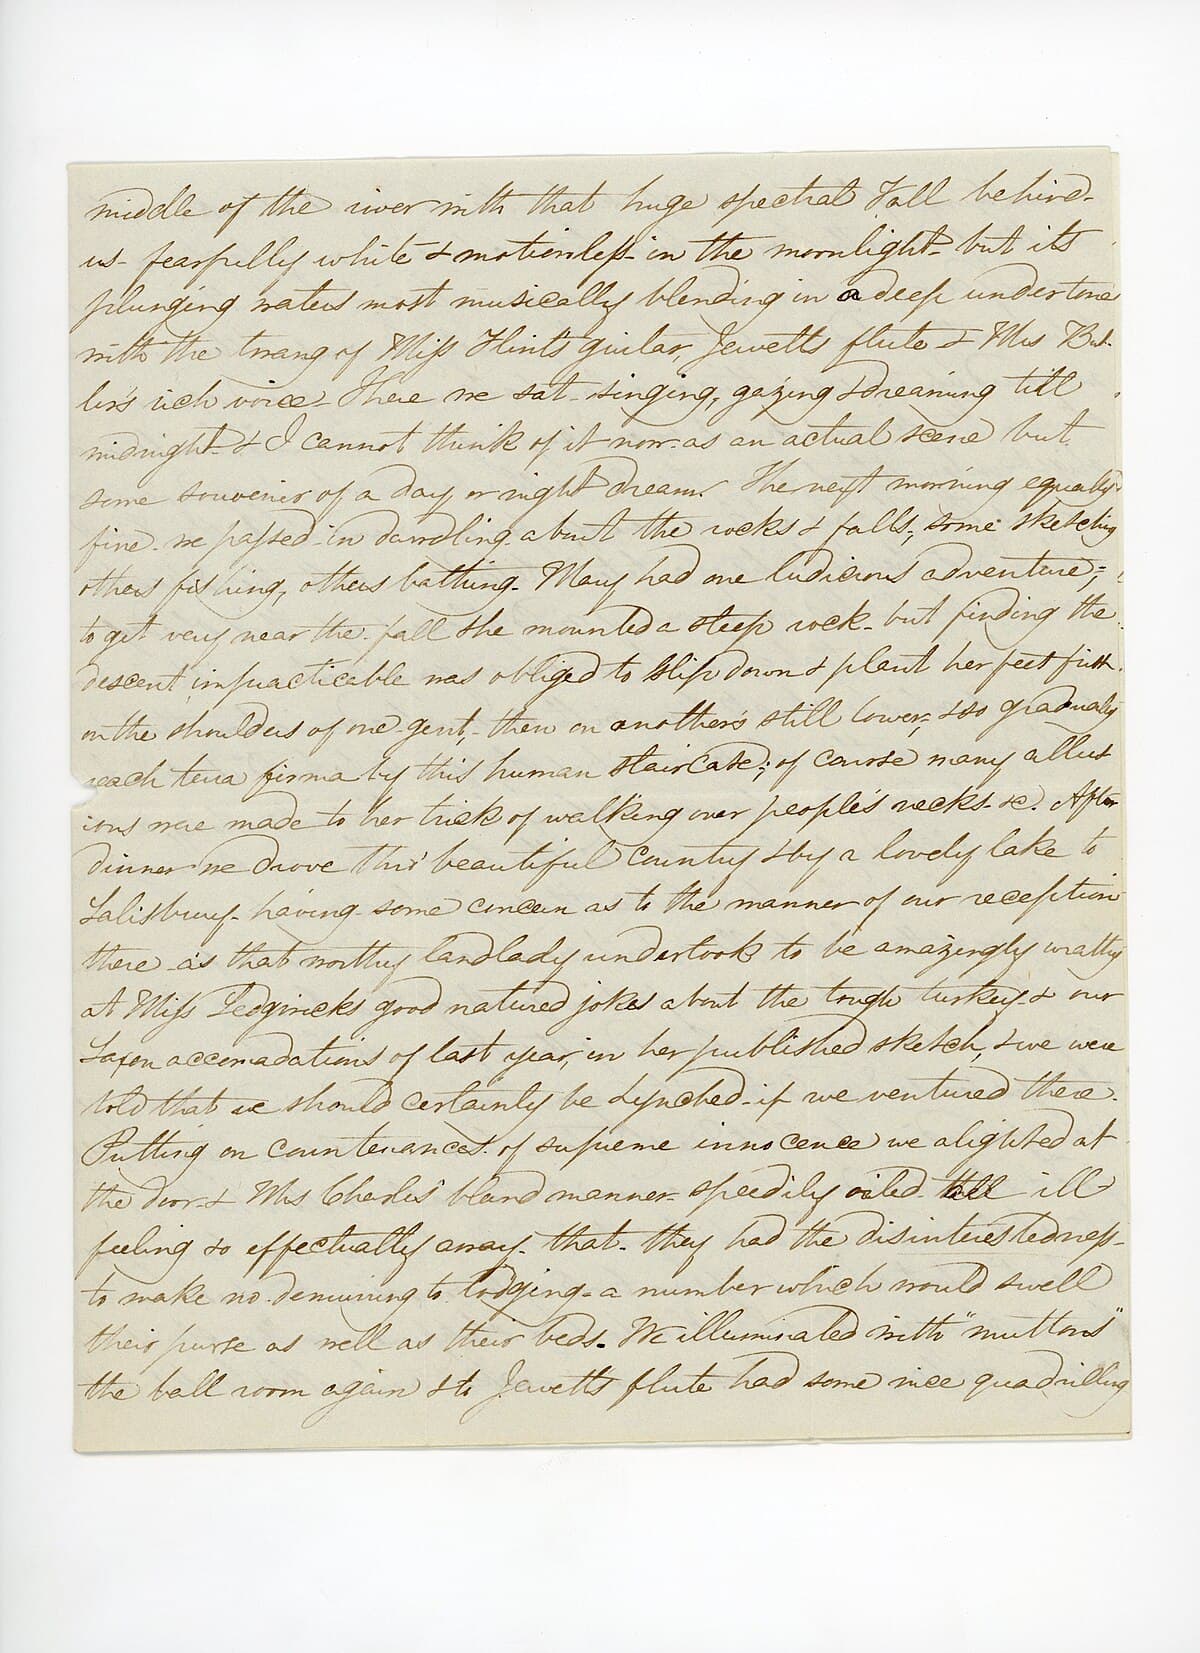 middle of the river with that huge spectral Fall behind
us - fearfully white & motionless - in the moonlight - but its
plunging waters most musically blending in a deep undertone
with the twang of Miss Flint's guitar, Jewetts flute & Mrs But-
ler's rich voice - There we sat - singing, gazing & dreaming till
midnight - & I cannot think of it now - as an actual scene but
some souvenir of a day or night dream. The next morning equally
fine - we passed - in dawdling about the rocks & falls; some sketching
others fishing, others bathing - Mary had one ludicrous adventure;
to get very near the fall she mounted a steep rock - but finding the
descent impracticable was obliged to slip down & plant her feet first
on the shoulders of one gent, - then on another's still lower, & so gradually
reach terra firma by this human staircase; of course many allus
ions were made to her trick of walking over people's necks - &c. After
dinner we drove thro' beautiful country & by a lovely lake to
Salisbury - having some concern as to the manner of our reception
there as that worthy landlady undertook to be amazingly wrathy
at Miss Sedgwicks good natured jokes about the tough turkey & our
Saxon accomadations of last year, in her published sketch, & we were
told that we should certainly be Lynched - if we ventured there.
Putting on countenances of supreme innocence we alighted at
the door - & Mrs Charles' bland manner - speedily oiled all ill
feeling so effectually away - that - they had the disinterestedness -
to make no demurring to lodging - a number which would swell
their purse as well as their beds - We illuminated with "muttons"
the ball room again & to Jewett's flute had some nice quadrilling